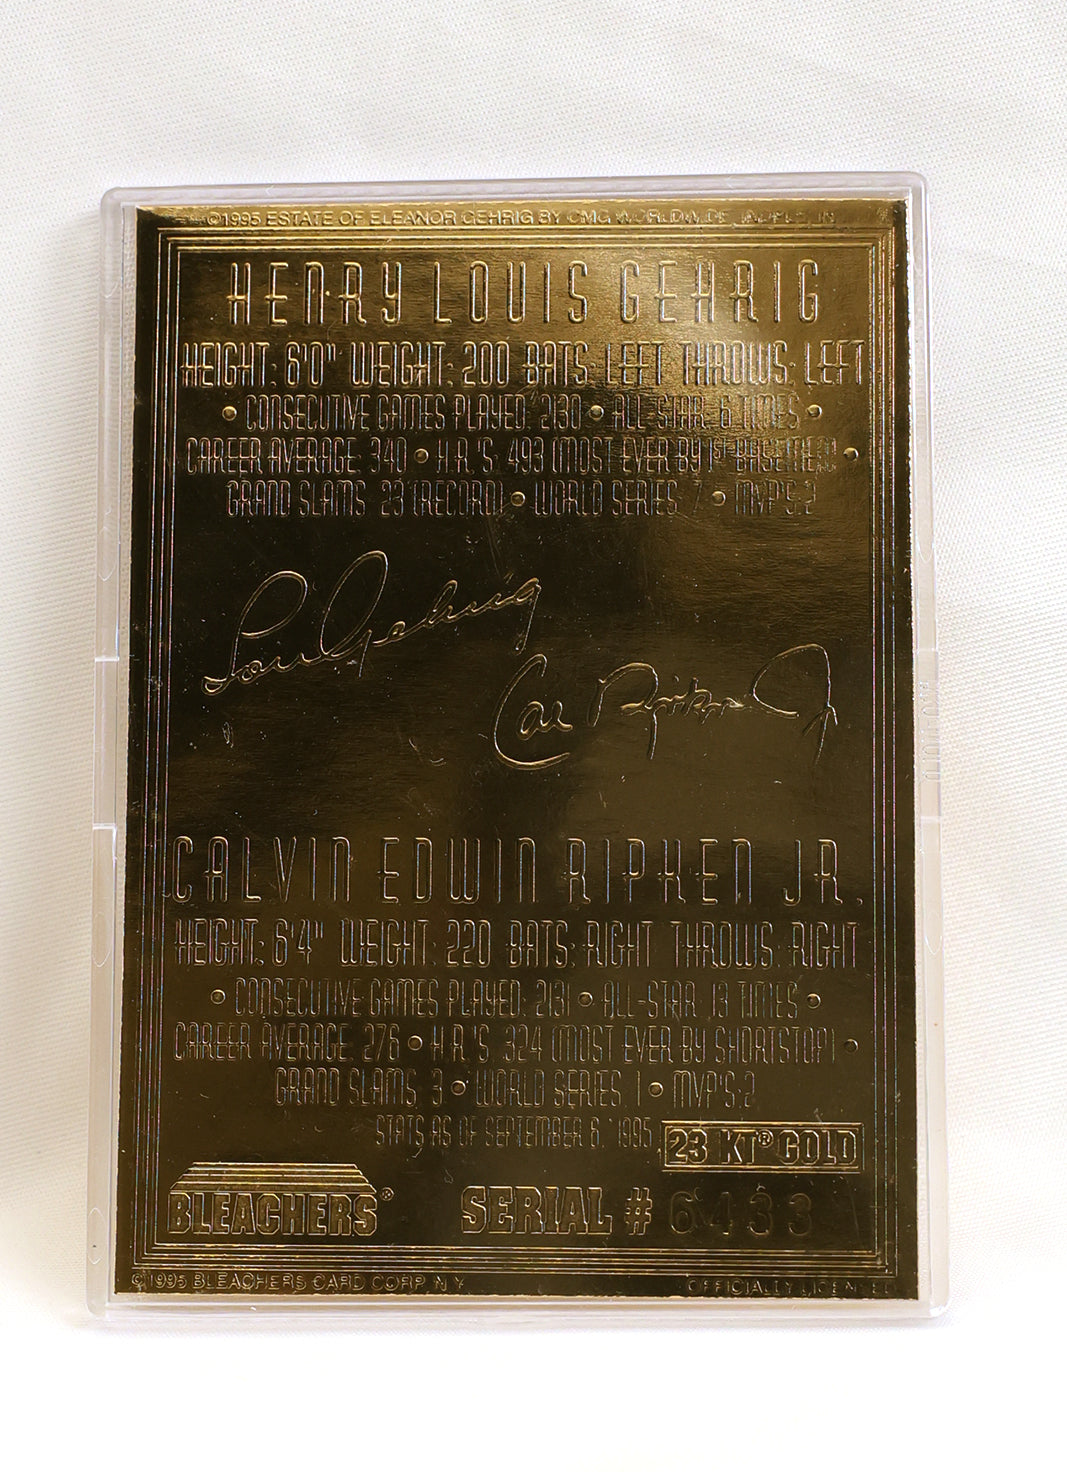 ©1995 ESTATE OF ELEANOR GEHRIG BY CMG WORLDWIDE
HENRY LOUIS GEHRIG
HEIGHT: 6'0" WEIGHT: 200 BATS: LEFT THROWS: LEFT
• CONSECUTIVE GAMES PLAYED: 2130 • ALL-STAR: 6 TIMES •
CAREER AVERAGE: 340 • H.R.'S: 493 (MOST EVER BY 1ST BASEMEN) •
GRAND SLAMS: 23 (RECORD) • WORLD SERIES: 7 • MVP'S: 2
Lou Gehrig
Cal Ripken Jr
CALVIN EDWIN RIPKEN JR.
HEIGHT: 6'4" WEIGHT: 220 BATS: RIGHT THROWS: RIGHT
• CONSECUTIVE GAMES PLAYED: 2131 • ALL-STAR: 13 TIMES •
CAREER AVERAGE: 276 • H.R.'S: 324 (MOST EVER BY SHORTSTOP) •
GRAND SLAMS: 3 • WORLD SERIES: 1 • MVP'S: 2
STATS AS OF SEPTEMBER 6, 1995
23 KT® GOLD
BLEACHERS® SERIAL # 6433
©1995 BLEACHERS CARD CORP. N.Y. OFFICIALLY LICENSED